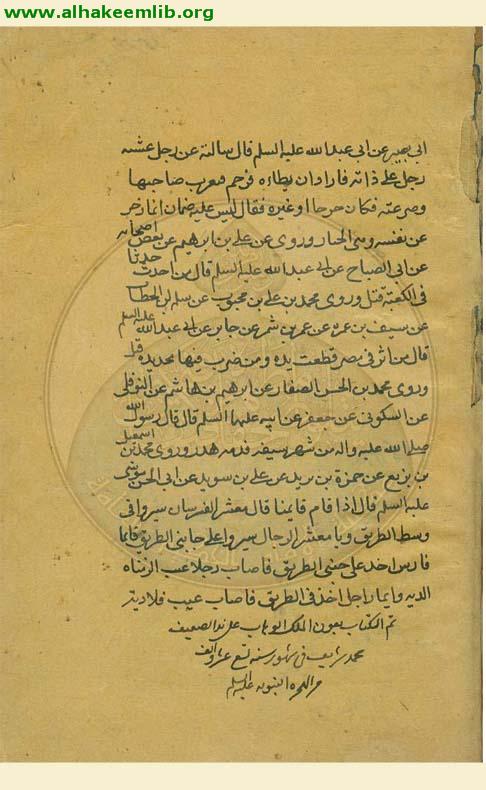 www.alhakeemlib.org
ابي بصير عن ابى عبدالله عليه السلم قال سالته عن رجل غشيه
رجل على دابة فاراد ان يطاه فزجر الدابة صاحبها
وصرعته فكان جرحا او غيره فقال ليس عليه ضمان انما زجر
عن نفسه وهى الجبار وروى عن على بن ابرهيم عن بعض اصحابه
عن ابى الصباح عن ابى عبدالله عليه السلم قال من احدث حدثا
فى الكعبة قتل وروى محمد بن على بن محبوب عن سلمة بن الخطاب
عن سيف بن عن عمرو بن شمر عن جابر عن ابى عبدالله عليه السلم
قال من اثر فى مصر قطعت يده ومن ضرب فيها بحديدة قتل
وروى محمد بن الحسن الصفار عن ابرهيم بن هاشم عن النوفلى
عن السكونى عن جعفر عن ابيه عليهما السلم قال قال رسول الله
صلى الله عليه واله من شهر سيفه فدمه هدر وروى محمد بن اسمعيل
بن بزيع عن حمزة بن عن على بن سويد عن ابى الحسن موسى
عليه السلم قال اذا قام قايمنا قال معشر الفرسان سيروا فى
وسط الطريق ويا معشر الرجال سيروا على جانبى الطريق فايما
فارس اخذ على جنبى الطريق فاصاب رجلا عيب الزمناه
الدية وايما راجل اخذ فى الطريق فاصاب عيب فلا دية
تم الكتاب بعون الملك الوهاب على يد الضعيف
محمد شريف فى شهور سنه تسع
من الهجره النبويه عليه السلم